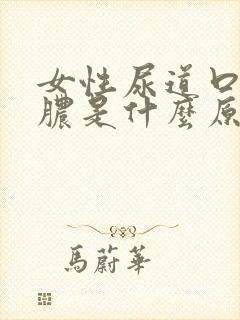 女性尿道口
膿是什麼原
馬蔚華